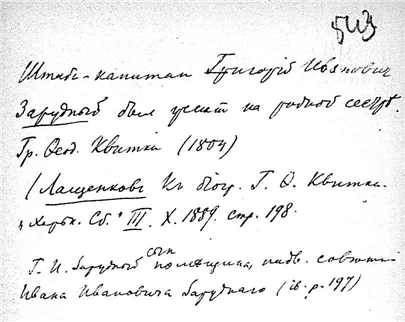 543
Штабс-капитан Григорій Иванович
Зарудный был женат на родной сестрѣ
Гр. Ѳеод. Квитки (1804)
(Лащенковъ Къ біогр. Г. Ѳ. Квитки.
„Харьк. Сб." III. Х. 1889. стр. 198.
Г. И. Зарудный сын помѣщика, надв. совѣтн.
Ивана Ивановича Заруднаго (ib. p. 197)